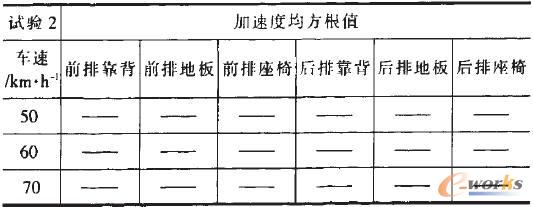 试验2 加速度均方根值
车速
/km·h⁻¹ 前排靠背 前排地板 前排座椅 后排靠背 后排地板 后排座椅
50 — — — — — —
60 — — — — — —
70 — — — — — —
e-works